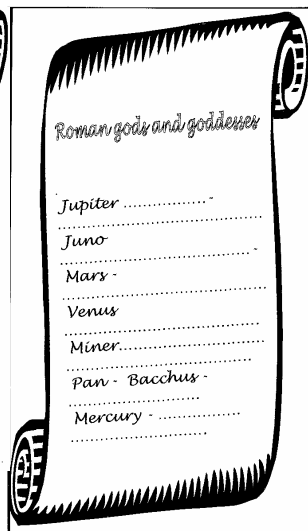 Roman gods and goddesses
Jupiter ................. -
..........................................
Juno
....................................... -
Mars -
..........................................
Venus
........................................
Miner..............................
......................................
Pan - Bacchus -
...........................
Mercury - .................
............................